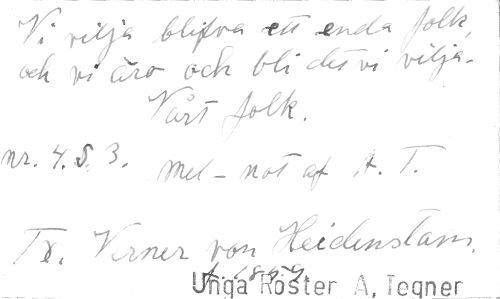 Vi vilja blifva ett enda folk,
och vi äro och bli det vi vilja.
Vårt folk.
nr. 4. S. 3. Mel - not af A. T.
Tx. Verner von Heidenstam.
f. 1859.
Unga Röster A. Tegner